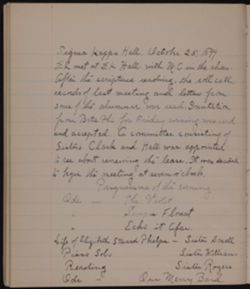 Sigma Kappa Hall, October 28, 1897
met at Hall with M.C. in the chair
After the scripture reading, the roll call
records of last meeting and letters from
some of the alumnae was read. Invitation
from Beta Phi for Friday evening was read
and accepted. A committee consisting of
Sisters Clark and Hall was appointed
to see about renewing the lease. It was decided
to begin the meeting at seven o'clock.
Programme of the evening
Ode - The Violet
" Float
" Echo it Afar
Life of Elizabeth Stuart Phelps - Sister
Piano Solo Sister
Reading Sister Rogers
Ode Our Merry Band